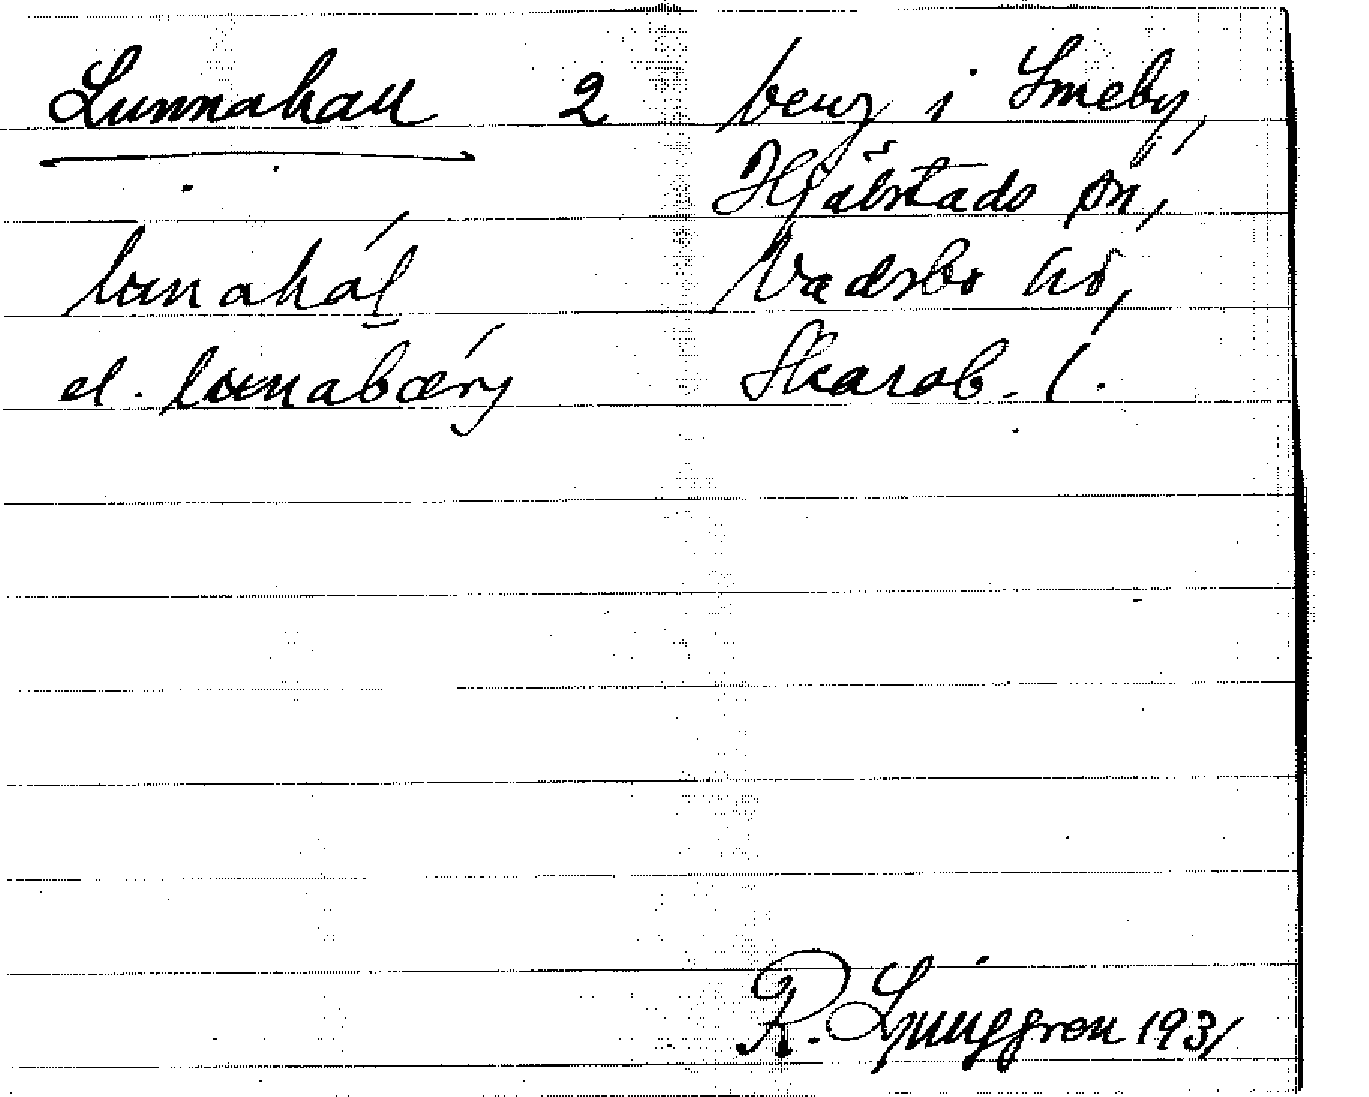 Lunnahall 2 berg i Smeby,
Hjälstads sn,
lunahál Vadsbo hd,
el. lunabærj Skarab. l.
R. Ljunggren 1931